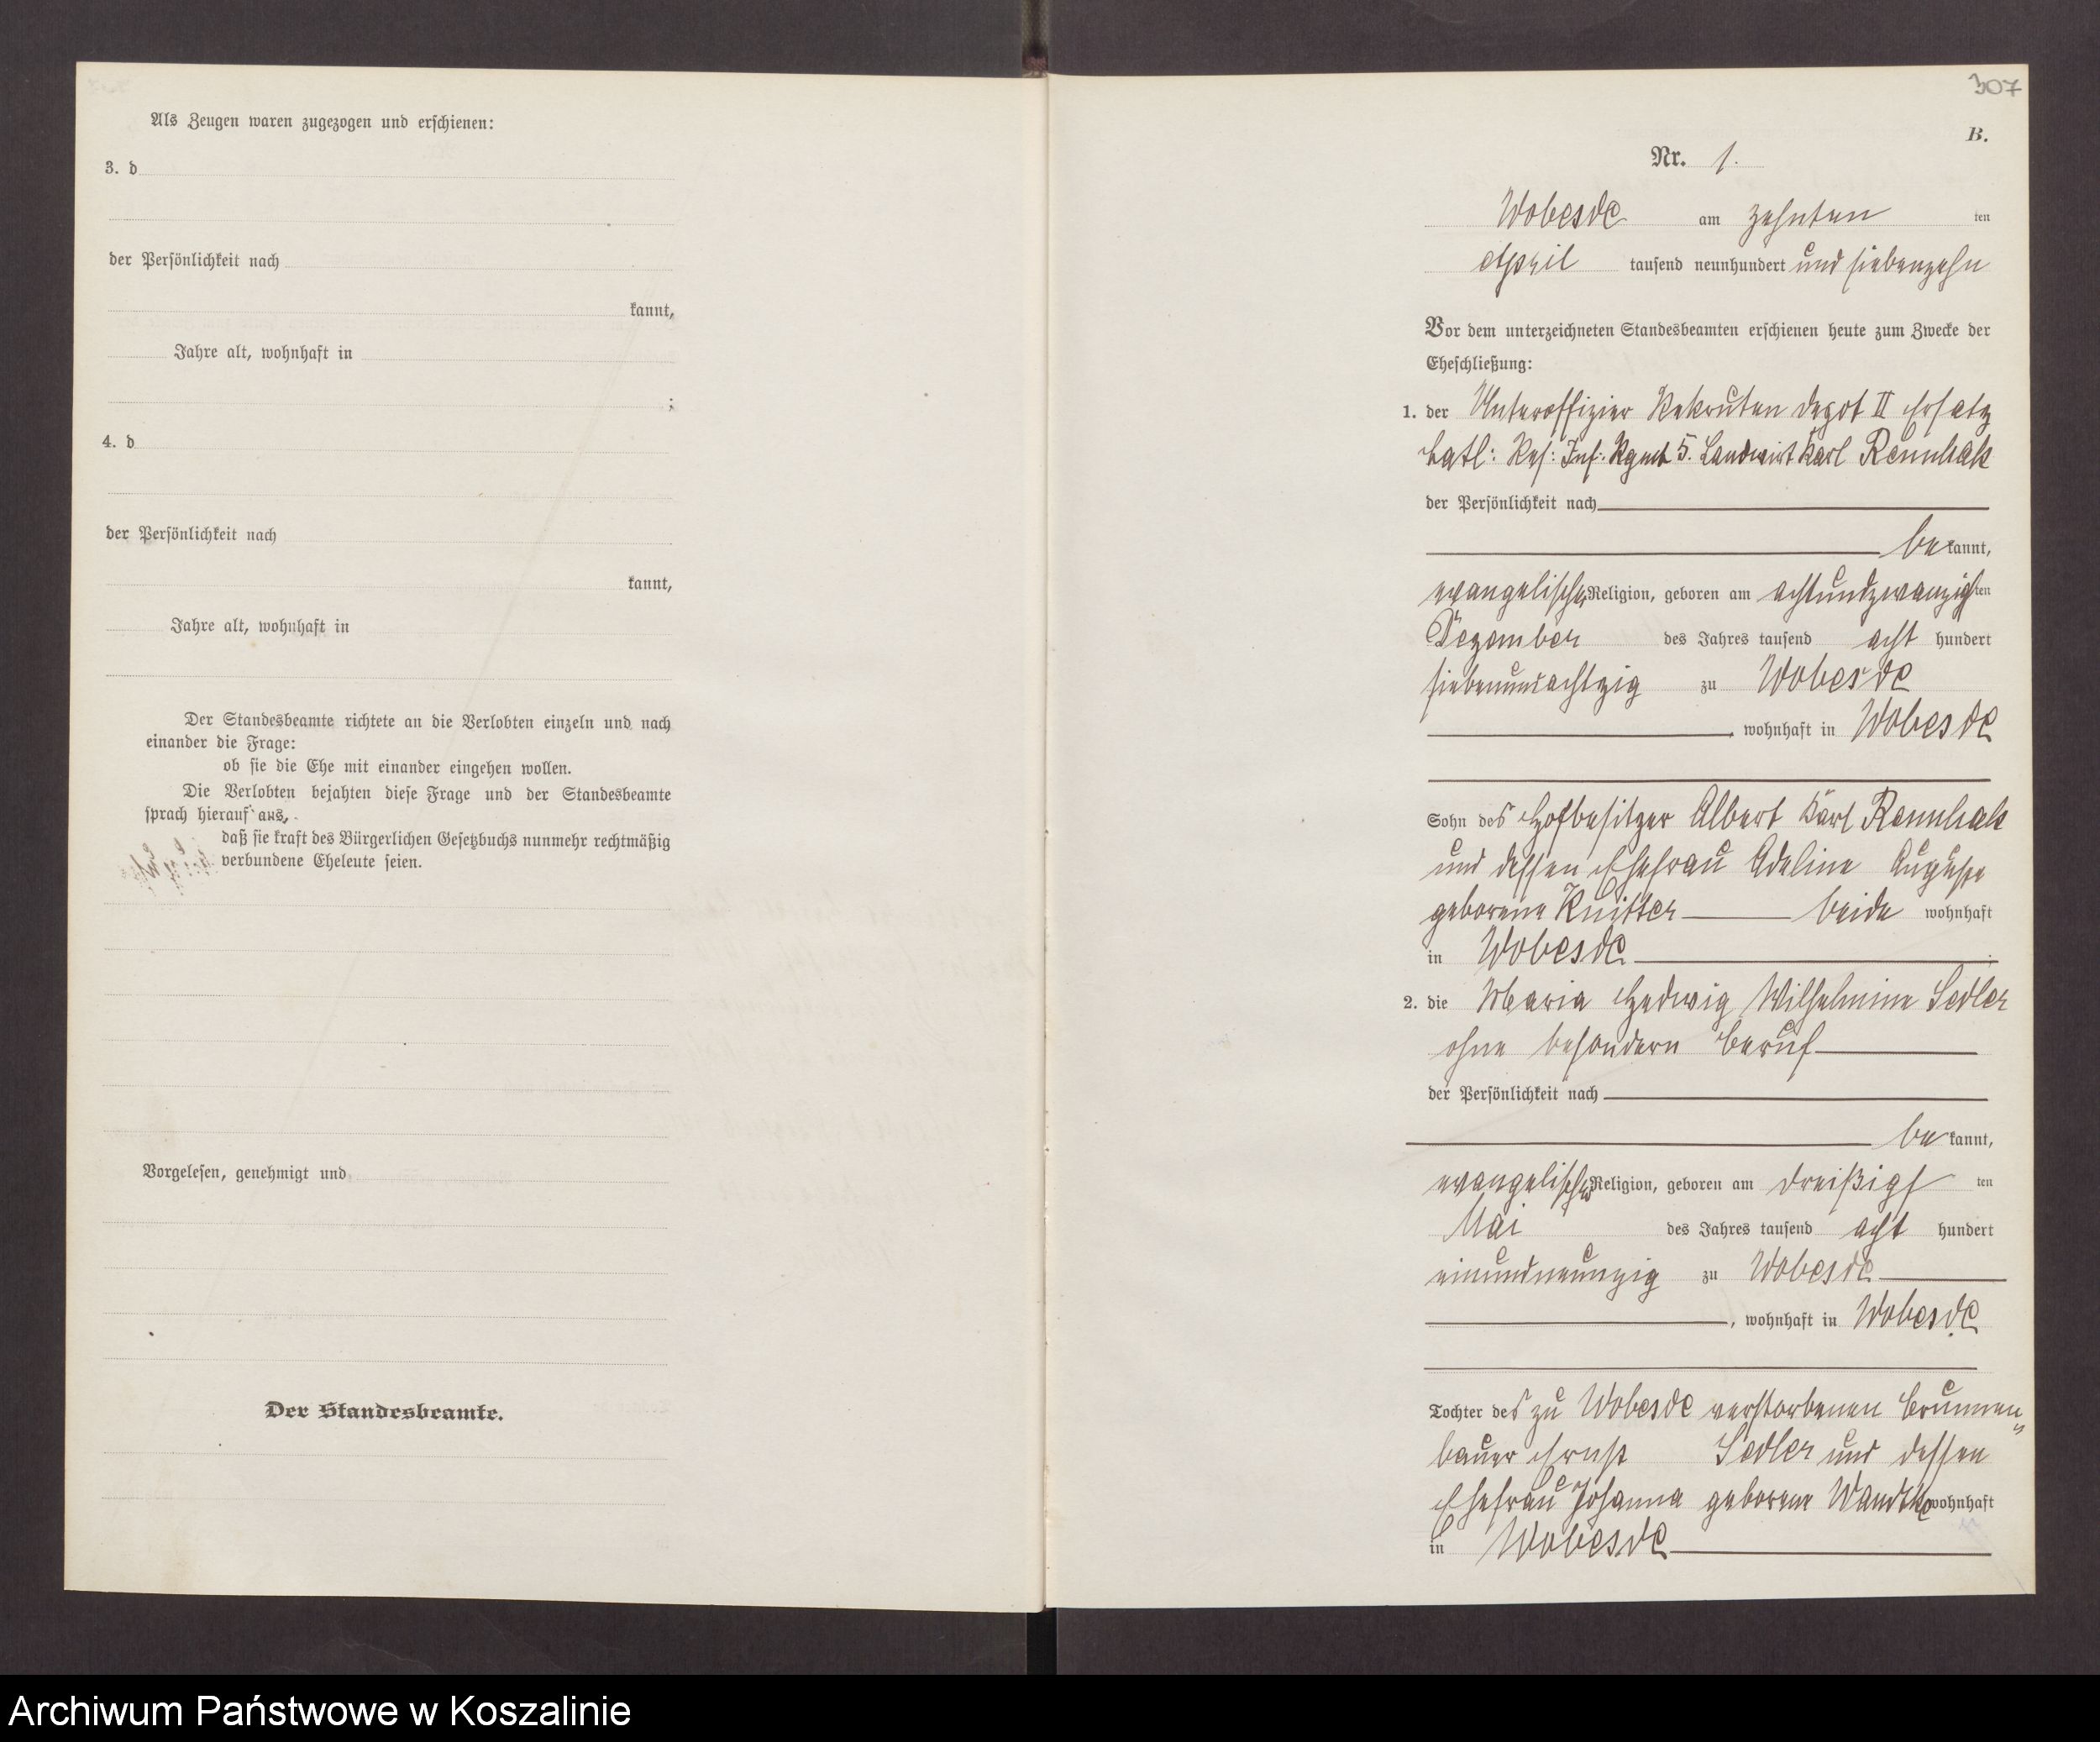 Als Zeugen waren zugezogen und erschienen:
3. d
der Persönlichkeit nach
kannt,
Jahre alt, wohnhaft in
;
4. d
der Persönlichkeit nach
kannt,
Jahre alt, wohnhaft in
Der Standesbeamte richtete an die Verlobten einzeln und nach
einander die Frage:
ob sie die Ehe mit einander eingehen wollen.
Die Verlobten bejahten diese Frage und der Standesbeamte
sprach hierauf aus,
daß sie kraft des Bürgerlichen Gesetzbuchs nunmehr rechtmäßig
verbundene Eheleute seien.
Vorgelesen, genehmigt und
Der Standesbeamte.
307
B.
Nr. 1.
Wobesde am zehnten ten
April tausend neunhundert und siebenzehn
Vor dem unterzeichneten Standesbeamten erschienen heute zum Zwecke der
Eheschließung:
1. der Unteroffizier Rekruten depot II Ersatz
Batl: Res: Inf: Rgmt 5. Landwirt Karl Rennhak
der Persönlichkeit nach
be kannt,
evangelischer Religion, geboren am achtundzwanzigsten
Dezember des Jahres tausend acht hundert
siebenundachtzig zu Wobesde
, wohnhaft in Wobesde
Sohn des Hofbesitzer Albert Karl Rennhak
und dessen Ehefrau Adeline Auguste
geborene Knitter beide wohnhaft
in Wobesde
2. die Maria Hedwig Wilhelmine Sedler
ohne besondern Beruf
der Persönlichkeit nach
be kannt,
evangelischer Religion, geboren am dreißigs ten
Mai des Jahres tausend acht hundert
einundneunzig zu Wobesde
, wohnhaft in Wobesde
Tochter des zu Wobesde verstorbenen Brunnen„
bauer Ernst Sedler und dessen
Ehefrau Johanna geborene Wandtke wohnhaft
in Wobesde
Archiwum Państwowe w Koszalinie